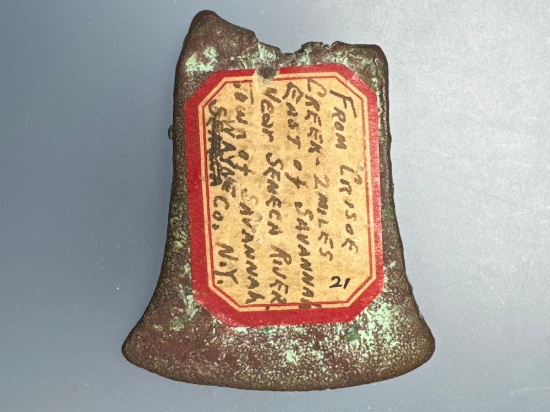 FROM CRUSOE
CREEK - 2 MILES
EAST of SAVANNAH
NEAR SENECA RIVER
TOWN of SAVANNAH
WAYNE Co. N.Y.
21